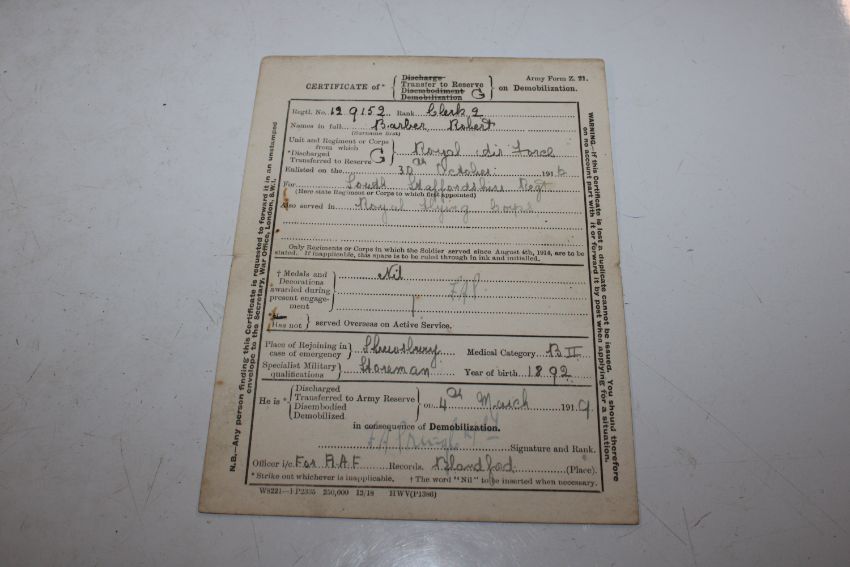 Army Form Z. 21.
CERTIFICATE of * { Discharge
Transfer to Reserve
Disembodiment
Demobilization } on Demobilization.
G
Regtl. No. 129152 Rank Clerk 2
Names in full Barber Robert
(Surname first)
Unit and Regiment or Corps
from which
*Discharged
Transferred to Reserve } Royal Air Force
G
Enlisted on the 30th October 191
For South Staffordshire Regt
(Here state Regiment or Corps to which first appointed)
Also served in Royal Flying Corps
Only Regiments or Corps in which the Soldier served since August 4th, 1914, are to be
stated. If inapplicable, this space is to be ruled through in ink and initialled.
† Medals and
Decorations
awarded during
present engage-
ment } Nil
*
Has not } served Overseas on Active Service.
Place of Rejoining in
case of emergency } Shrewsbury Medical Category B II
Specialist Military
qualifications } Storeman Year of birth 1892
He is * { Discharged
Transferred to Army Reserve
Disembodied
Demobilized } on 4th March 1919
in consequence of Demobilization.
Signature and Rank.
Officer i/c For RAF Records. Blandford (Place).
*Strike out whichever is inapplicable. † The word "Nil" to be inserted when necessary.
W8221—P2335 250,000 12/18 HWV(P1386)
N.B.—Any person finding this Certificate is requested to forward it in an unstamped
envelope to the Secretary, War Office, London, S.W.1.
WARNING.—If this Certificate is lost a duplicate cannot be issued. You should therefore
on no account part with it or forward it by post when applying for a situation.